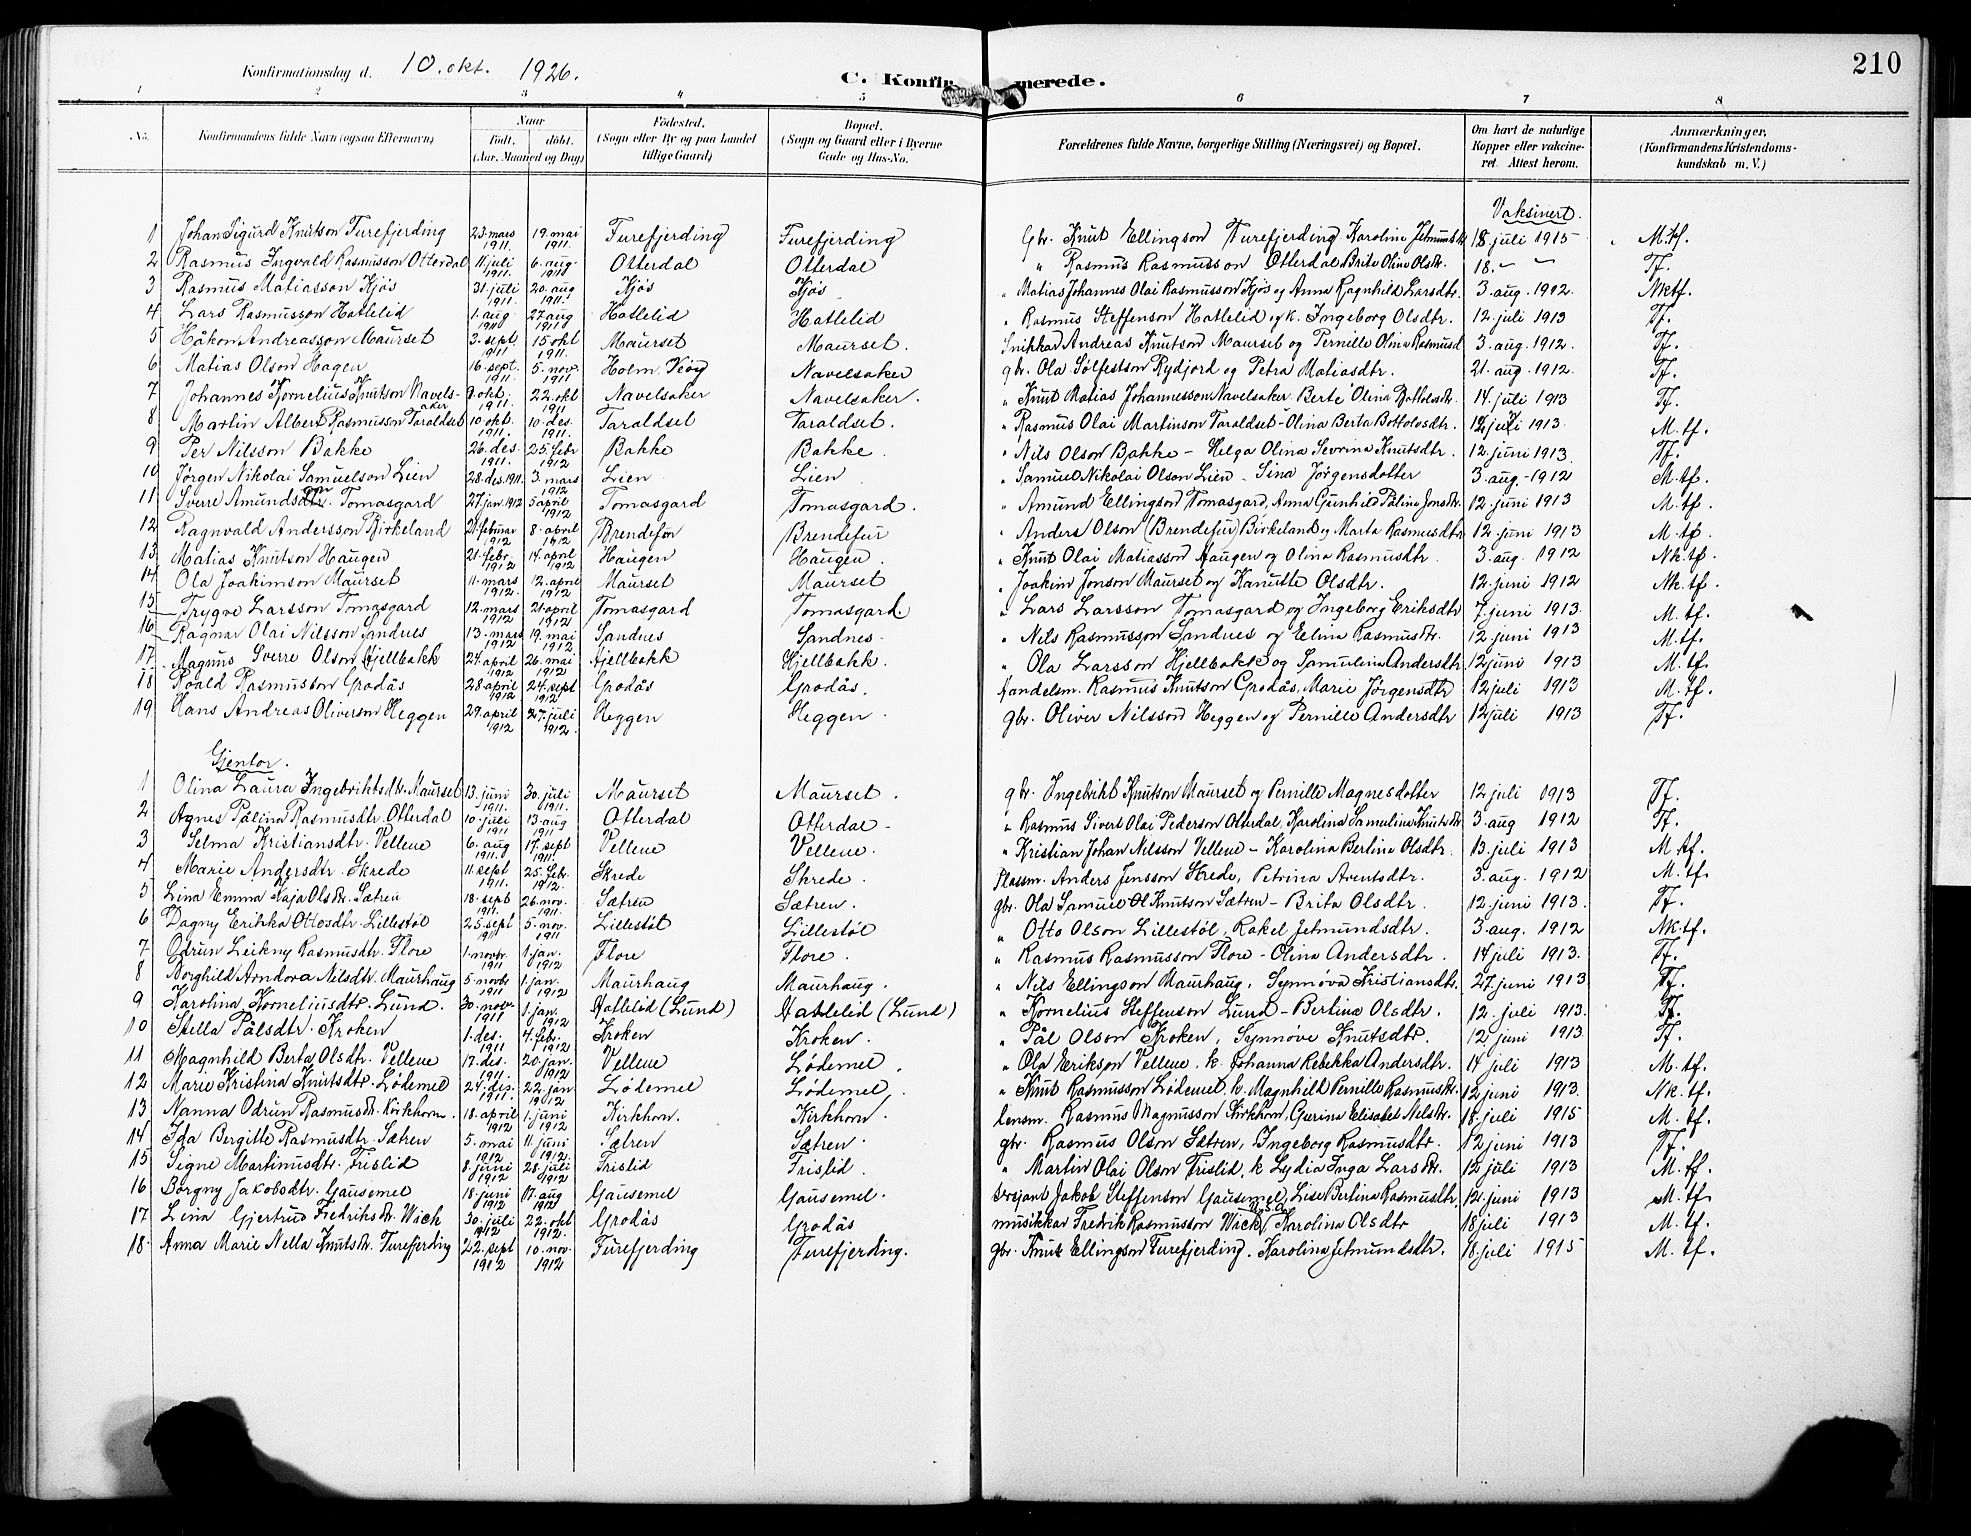 Konfirmationsdag d. 10. okt. 1926. C. Konfir merede. 210
1 2 3 4 5 6 7 8
No. Konfirmandens fulde Navn (ogsaa Efternavn) Naar födt. döbt. (Aar, Maaned og Dag) Födested. (Sogn eller By og paa Landet tillige Gaard) Bopæl. (Sogn og Gaard eller i Byerne Gade og Hus-No. Forældrenes fulde Navne, borgerlige Stilling (Næringsvei) og Bopæl. Om havt de naturlige Kopper eller vakcineret. Attest herom. Anmærkninger. (Konfirmandens Kristendomskundskab m. V.)
Vaksinert.
1 Johan Sigurd Knutson Furefjerding 23. mars 1911. 19. mai 1911. Furefjerding Furefjerding Gbr. Knut Ellingson Furefjerding Karoline Jetmundsdtr 18 juli 1915 M.tf.
2 Rasmus Ingvald Rasmusson Otterdal 11. juli 1911. 6. aug. 1911 Otterdal Otterdal " Rasmus Rasmusson Otterdal, Brite Olina Olsdtr. 18. – – Tf.
3 Rasmus Matiasson Kjøs 31. juli 1911. 20. aug 1911. Kjøs Kjøs " Matias Johannes Olai Rasmusson Kjøs og Anna Ragnhild Larsdtr. 3. aug. 1912. Nktf.
4 Lars Rasmusson Hatlelid 1. aug 1911 27. aug 1911 Hatlelid Hatlelid " Rasmus Steffenson Hatlelid og k. Ingeborg Olsdtr. 12. juli 1913 Tf.
5 Håkon Andreasson Maurset 3. sept. 1911 15. okt 1911. Maurset Maurset. Snikkar Andreas Knutson Maurset og Pernille Olina Rasmusd 3. aug. 1912. Tf.
6 Matias Olson Hagen 16. sept. 1911. 5. nov. 1911 Holm Navelsaker gbr. Ola Sølfestson Rydjord og Petra Matiasdtr. 21. aug. 1912. Tf.
7 Johannes Kornelius Knutson Navelsaker 9. okt. 1911. 22. okt 1911 Navelsaker Navelsaker. " Knut Matias Johannesson Navelsaker Berte Olina Bottolvsdtr. 14. juli 1913 Tf.
8 Martin Albert Rasmusson Taraldset 10. okt. 1911. 10. des. 1911. Taraldset Taraldset. " Rasmus Olai Martinson Taraldset – Olina Berta Bottolvsdtr. 12. juli 1913. M. tf.
9 Per Nilsson Bakke 26. des. 1911. 25. febr 1912 Bakke Bakke. " Nils Olson Bakke – Helga Olina Severina Knutsdtr. 12. juni 1913. Tf.
10 Jørgen Nikolai Samuelson Lien 28. des. 1911. 3. mars 1912 Lien Lien " Samuel Nikolai Olson Lien – Sina Jørgensdotter 3. aug. 1912 M. tf.
11 Sverre Amundson Tomasgard 27. jan. 1912 5 april 1912 Tomasgard Tomasgard. " Amund Ellingson Tomasgard, Anna Gunhild Pålina Jonsdtr. 12 juni 1913 M. tf.
12 Ragnvald Andersson Birkeland 21. februar 1912 8. april 1912 Brendefur Brendefur " Anders Olson (Brendefur) Birkeland og Marta Rasmusdtr 12 juni 1913 M. tf.
13 Matias Knutson Haugen 21. febr. 1912 14. april 1912 Haugen Haugen. " Knut Olai Matiasson Haugen og Olina Rasmusdtr. 3. aug. 1912 Nk.tf.
14 Ola Joakimson Maurset 11. mars 1912. 12. april 1912 Maurset Maurset " Joakim Jonson Maurset og Kanutte Olsdtr. 12. juni 1912 Nk. tf.
15 Trygve Larsson Tomasgard 12. mars 1912 21. april 1912 Tomasgard Tomasgard. " Lars Larsson Tomasgard og Ingeborg Eriksdtr 7. juni 1913. M. tf.
16 Ragnar Olai Nilsson Sandnes 13. mars 1912 19. mai 1912 Sandnes Sandnes. " Nils Rasmusson Sandnes og Elina Rasmusdtr. 12. juni 1913 M. tf.
17 Magnus Sverre Olson Hjellbakk 24. april 1912 26. mai 1912 Hjellbakk Hjellbakk. " Ola Larsson Hjellbakk og Samuline Andersdtr 12 juni 1913 M. tf.
18 Roald Rasmusson Grodås 28. april 1912 24. sept 1912 Grodås Grodås. Handelsm. Rasmus Knutson Grodås, Marie Jørgensdtr 12 juli 1913 M. tf.
19 Hans Andreas Oliverson Heggen 29. april 1912 27. juli 1912. Heggen Heggen. gbr. Oliver Nilsson Heggen og Pernille Andersdtr 12 juli 1913 Tf.
Gjentor.
1 Olina Laura Ingebriktsdtr. Maurset 13. juni 1911. 30. juli 1911. Maurset Maurset. gbr. Ingebrikt Knutson Maurset og Pernille Magnesdotter 12 juli 1913 Tf.
2 Agnes Pålina Rasmusdtr. Otterdal 10. juli 1911 13. aug 1911 Otterdal Otterdal " Rasmus Sivert Olai Pederson Otterdal, Karolina Samulina Knutsdtr 3. aug 1912 Tf.
3 Selma Kristiansdtr. Vellene 6. aug 1911. 17. sept 1911. Vellene Vellene. " Kristian Johan Nilsson Vellene – Karolina Berlina Olsdtr. 13. juli 1913 M tf.
4 Marie Andersdtr. Skrede 11. sept 1911. 25. febr. 1912. Skrede Skrede. Plassm. Anders Jensson Skrede, Petrina Aventsdtr. 3. aug. 1912 M. tf.
5 Lina Emma Kaja Olsdtr. Sætren 18. sept 1911. 26. nov. 1911. Sætren Sætren. gbr. Ola Samuel Ol Knutson Sætren – Brita Olsdtr. 12. juni 1913. Tf.
6 Dagny Erikka Ottosdtr. Lillestøl 25. sept 1911 5. nov. 1911 Lillestøl Lillestøl " Otto Olson Lillestøl, Rakel Jetmundsdtr. 3. aug. 1912 Nk. tf.
7 Odrun Leikny Rasmusdtr. Flore 1. novbr. 1911 1. jan. 1912 Flore Flore. " Rasmus Rasmusson Flore – Olina Andersdtr. 14 juli 1913. Tf.
8 Borghild Arndora Nilsdtr. Maurhaug 5. novbr 1911 1. jan. 1912 Maurhaug Maurhaug. " Nils Ellingson Maurhaug, Synnøva Kristiansdtr. 27. juni 1913 Tf.
9 Karolina Korneliusdtr. Lund. 30. nov. 1911 1. jan. 1912 Hatlelid (Lund) Hatlelid (Lund) " Kornelius Steffenson Lund – Berlina Olsdtr. 12. juli 1913. Tf.
10 Stella Pålsdtr. Kroken 1. des. 1911 4. febr. 1912 Kroken Kroken. " Pål Olson Kroken, Synnøve Knutsdtr. 12 juni 1913 Tf.
11 Magnhild Berta Olsdtr. Vellene 17. des. 1911. 20. jan. 1912 Vellene Lødemel. " Ola Erikson Vellene. k. Johanna Rebekka Andersdtr. 14 juli 1913 M. tf.
12 Marie Kristina Knutsdtr. Lødemel 24. des. 1911. 22. jan 1912 Lødemel Lødemel. " Knut Rasmusson Lødemel, k. Magnhild Pernille Rasmusdtr. 12 juni 1913. Nk. tf.
13 Nanna Odrun Rasmusdtr. Kirkhorn. 18. april 1912 1. juni 1912 Kirkhorn. Kirkhorn. lensm. Rasmus Magnusson Kirkhorn, Gurina Elisabet Nilsdtr. 18. juli 1915 M. tf.
14 Ida Bergitte Rasmusdtr. Sætren 5. mai 1912 11. juni 1912. Sætren Sætren. gbr. Rasmus Olson Sætren, Ingeborg Rasmusdtr. 12 juni 1913 Tf.
15 Signe Martinusdtr. Frislid 8. juni 1912 28. juli 1912 Frislid Frislid. " Martin Olai Olson Frislid, k Lydia Inga Larsdtr. 12 juli 1913 M. tf.
16 Borgny Jakobsdtr. Gausemel 18. juni 1912 17. aug 1912 Gausemel Gausemel. sersjant Jakob Steffenson Gausemel, Lise Berlina Rasmusdtr. 12. juni 1913 M. tf.
17 Lina Gjertrud Fredriksdtr. Wick 30. juli 1912 22. okt 1912. Grodås Grodås musikkar Fredrik Rasmusson Wick, Karolina Olsdtr 18 juli 1913 M. tf.
18. Anna Marie Nella Knutsdtr. Furefjerding 22. sept 1912 10. nov. 1912 Furefjerding Furefjerding. gbr. Knut Ellingson Furefjerding, Karolina Jetmundsdtr. 18. juli 1915 M. tf.